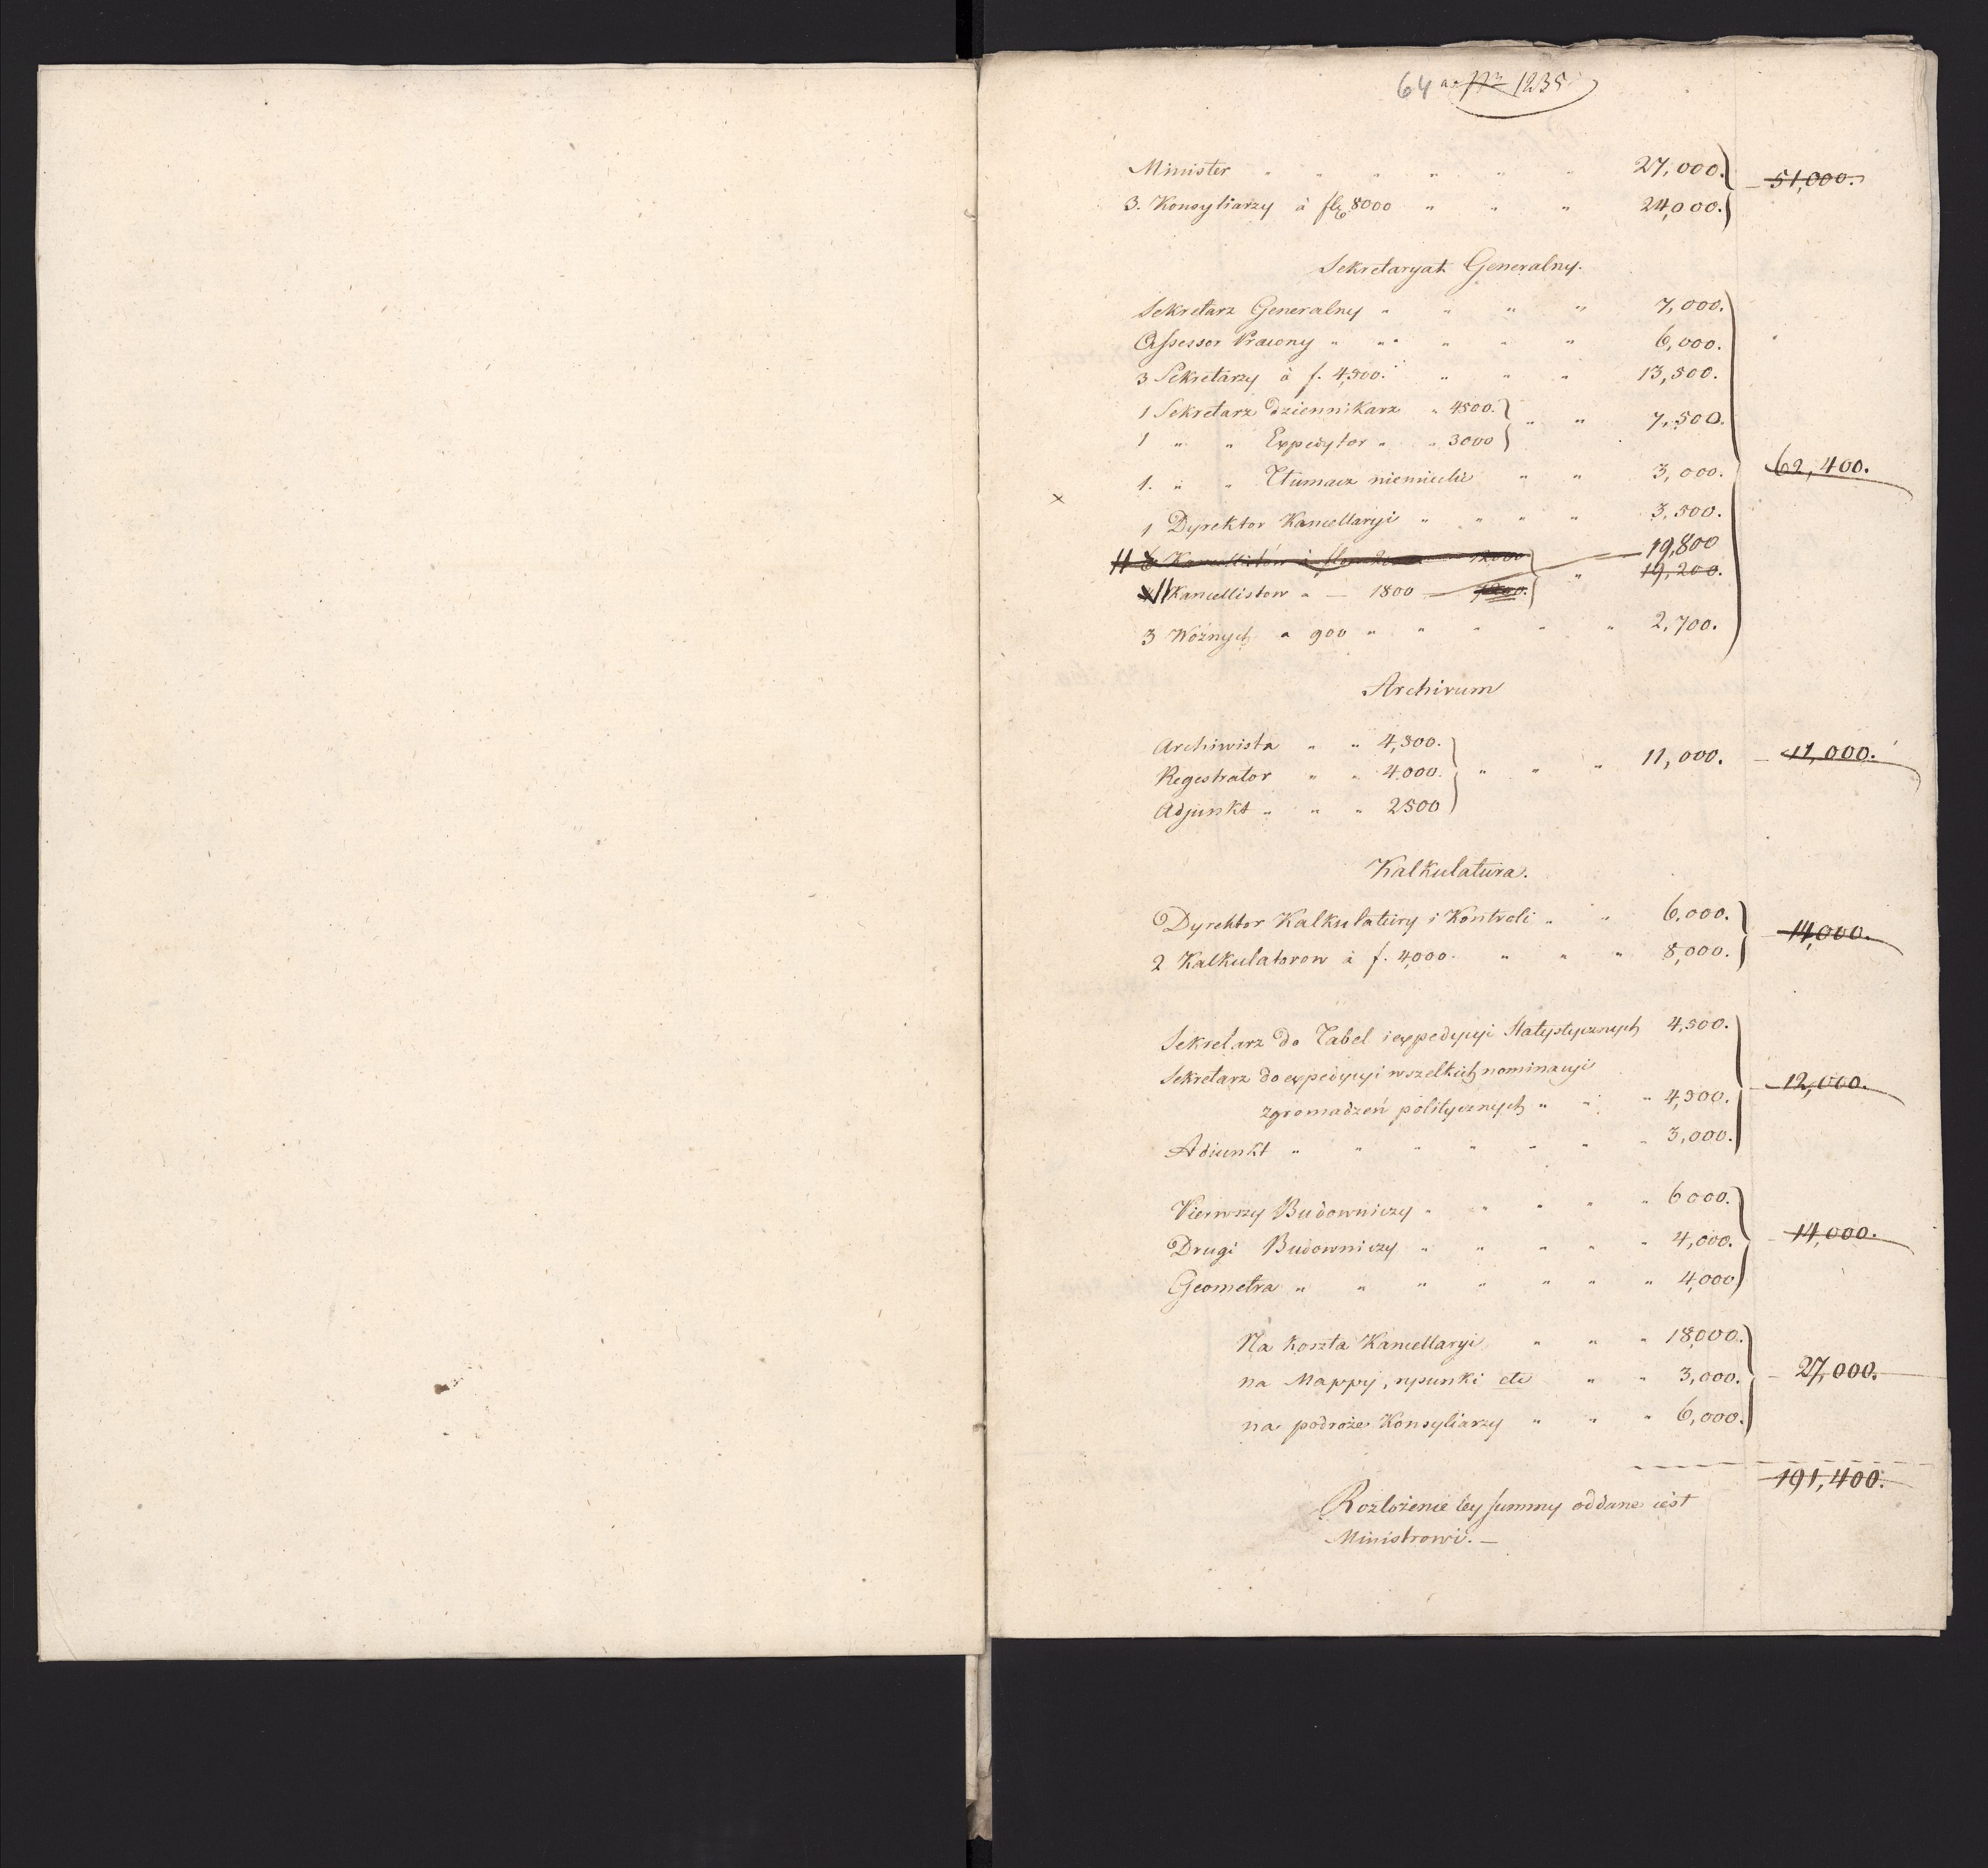 64 a. 1235
Minister " " " " " " 27,000.
51,000.
3. Konsyliarzy à flp 8000 " " " 24,000.
Sekretaryat Generalny.
Sekretarz Generalny " " " " 7,000.
Assessor Prawny " " " " " 6,000.
3 Sekretarzy à f. 4,500. " " " 13,500.
1 Sekretarz dziennikarz " 4500.
" " 7,500.
1 " " Expedytor " " 3000
62,400.
1. " " Tłumacz niemiecki " " 3,000.
1 Dyrektor Kancellaryi " " " " 3,500.
6 Kancellistów à 12000 19,800
19,200.
11 Kancellistow a — 1800 — 7200.
3 Woźnych a 900 " " " " " 2,700.
Archivum
Archiwista " " 4,500.
Regestrator " " 4,000. " " " 11,000. — 11,000.
Adjunkt " " " 2500
Kalkulatura.
Dyrektor Kalkulatury i Kontroli " " 6,000.
14,000.
2 Kalkulatorow à f. 4,000. " " " 8,000.
Sekretarz do Tabel i expedycyi Statystycznych 4,500.
Sekretarz do expedycyi wszelkich nominacyi
12,000.
zgromadzeń politycznych " " " 4,500.
Adiunkt " " " " " " " 3,000.
Pierwszy Budowniczy " " " " " 6000.
Drugi Budowniczy " " " " " 4,000. — 14,000.
Geometra " " " " " " " 4,000
Na koszta Kancellaryi " " " 18,000.
na Mappy, rysunki etc " " 3,000. — 27,000.
na podroże Konsyliarzy " " " 6,000.
191,400.
Rozłożenie tey summy oddane iest
Ministrowi. —